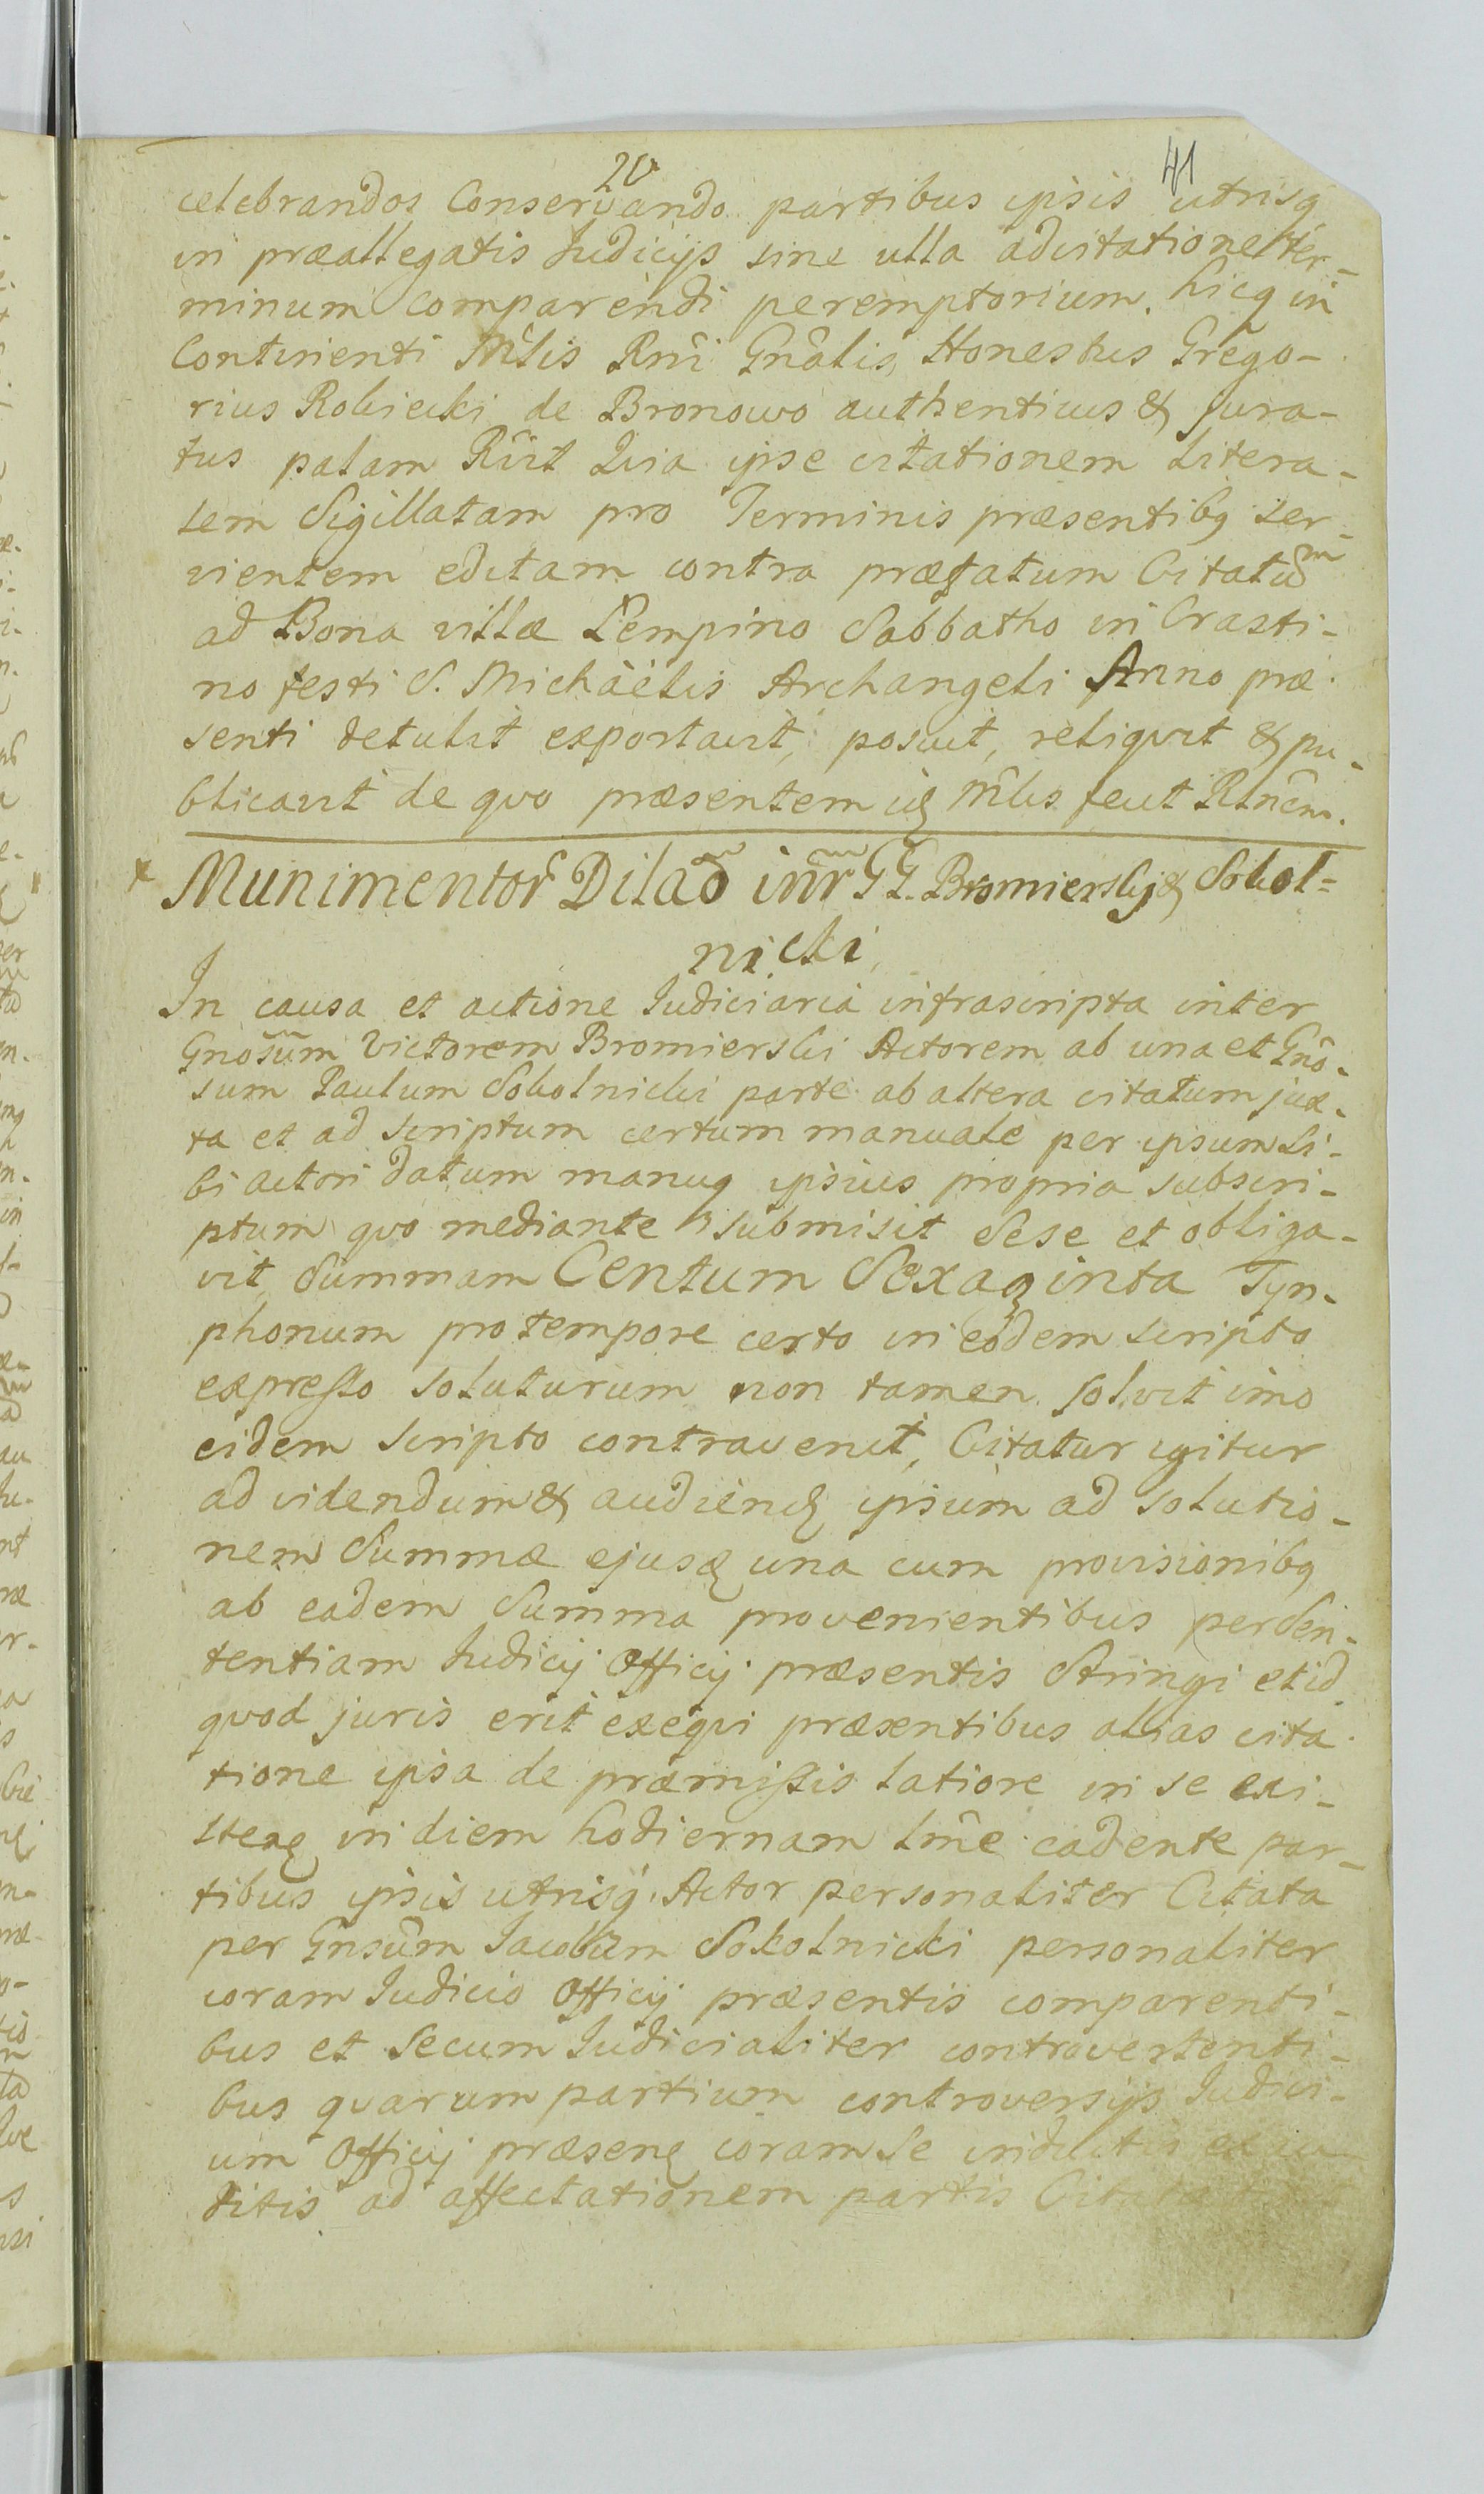 20
41
celebrandos Conservando partibus ipsis utrisq
in præallegatis Judicijs sine ulla adcitatione Ter-
minum comparendi peremptorium. hicq in
Continenti Mtlis Rni Gnâlis, Honestus Grego-
rius Robiecki de Bronowo authenticus & Jura-
tus palam Rûit Quia ipse citationem Litera-
lem Sigillatam pro Terminis præsentibq ser-
vientem editam contra præfatum Citatum
ad Bona villæ Lempino Sabbatho in Crasti-
no festi S. Michaèlis Archangeli Anno præ-
senti detulit exportavit, posuit, reliqvit & pu-
blicavit de qvo præsentem idq Mtlis fecit Rlnêm.
Munimentor Dilaõ inr GG. Bromierskj & Sokol-
nicki
In causa et actione Judiciaria infrascripta inter
Gnosum Victorem Bromierski Actorem ab una et Gnô-
sum Paulum Sokolnicki parte ab altera citatum jux-
ta et ad scriptum certum manuale per ipsum si-
bi actori datum manuq ipsius propria subscri-
ptum qvo mediante submisit sese et obliga-
vit Summam Centum Sexaginta Tyn-
phonum pro tempore certo in eodem scripto
expresso soluturum non tamen solvit imo
eidem scripto contravenit, Citatur igitur
ad videndum & audiendq ipsum ad solutio-
nem Summæ ejusdq una cum provisionibq
ab eadem Summa provenientibus per Sen-
tentiam Judicij Officij præsentis Stringi et id
qvod juris erit exeqvi præsentibus alias cita-
tione ipsa de præmissis latiore in se exi-
stenq in diem hodiernam lmê cadente par-
tibus ipsis utrisq. Actor personaliter Citata
per Gnsûm Jacobum Sokolnicki personaliter
coram Judicio Officij præsentis comparenti-
bus et secum Judicialiter controvertenti-
bus qvarum partium controversijs Judici-
um Officij præsenq coram se inductis exau-
ditis ad affectationem partis